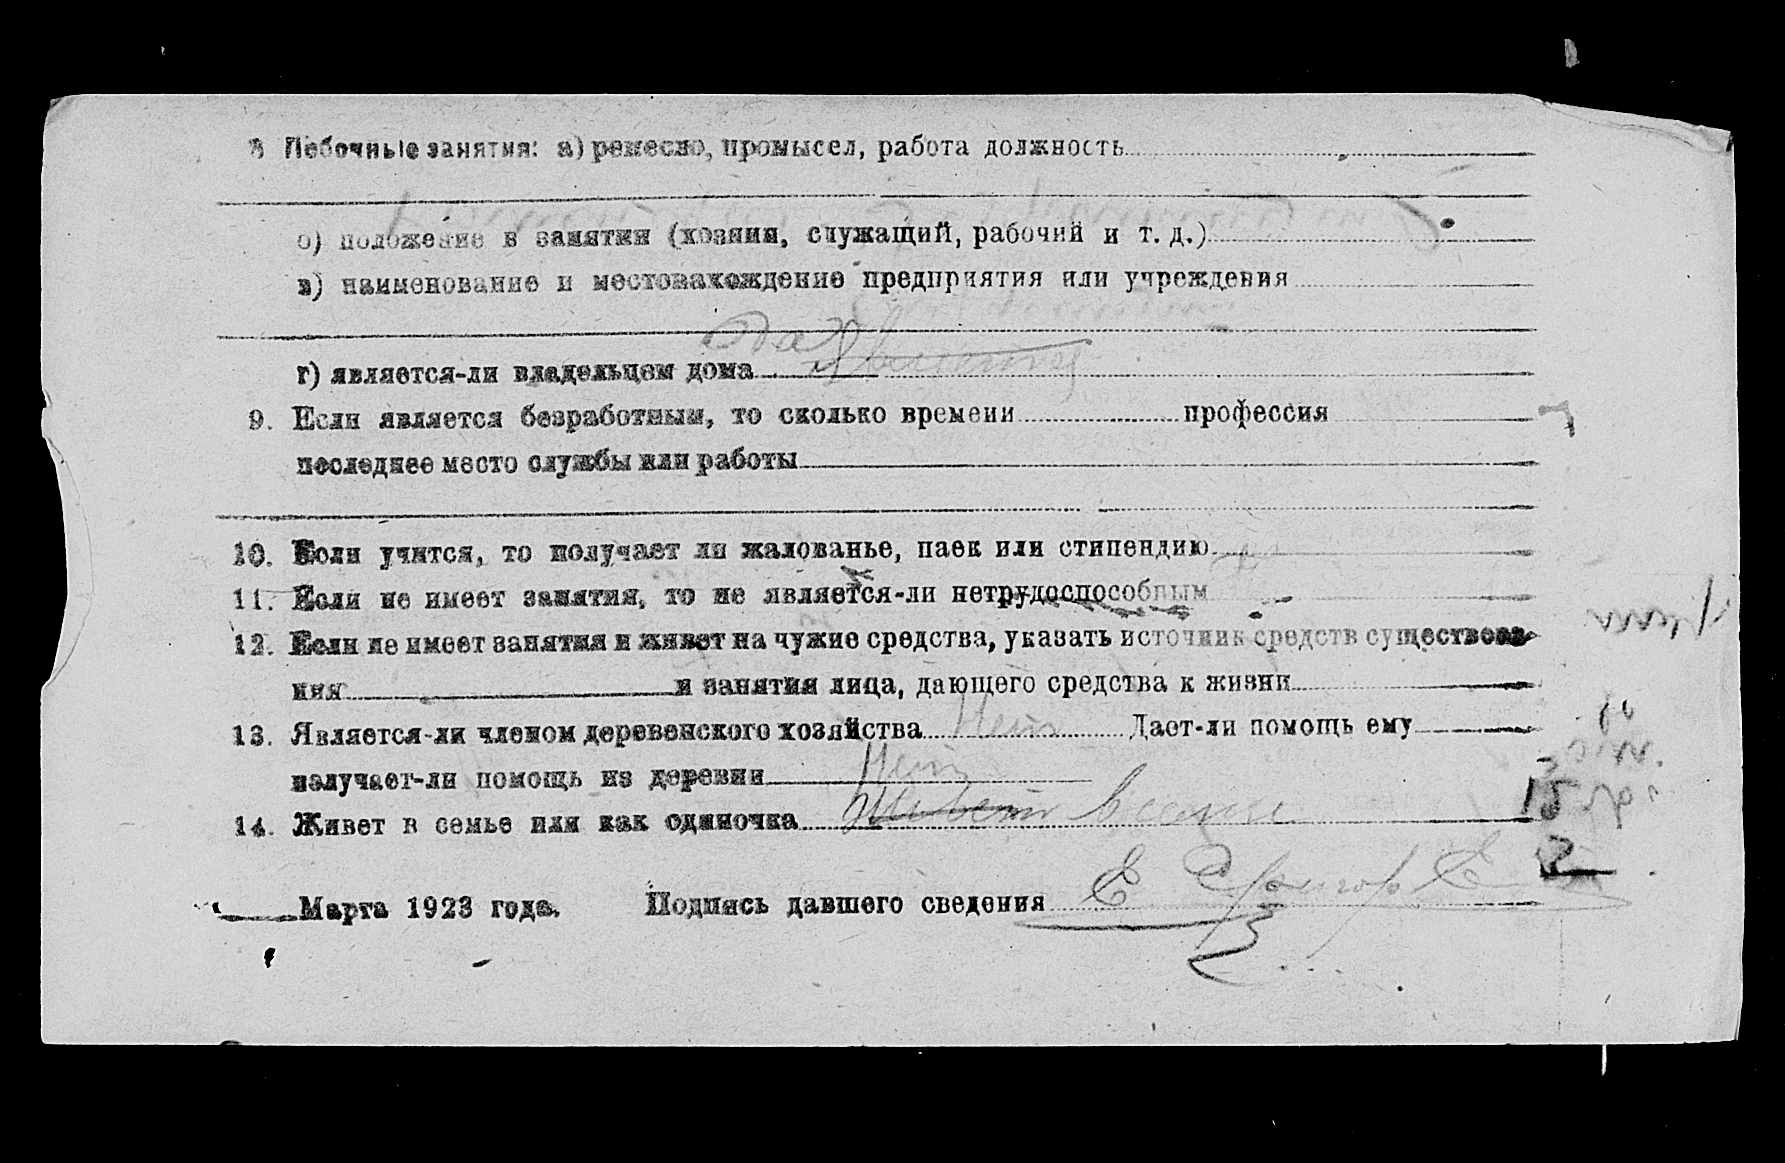 8 Побочные занятия: а) ремесло, промысел, работа должность
б) положение в занятии (хозяин, служащий, рабочий и т. д.)
в) наименование и местонахождение предприятия или учреждения
г) является-ли владельцем дома Да Является
9. Если является безработным, то сколько времени профессия
последнее место службы или работы
10. Если учится, то получает ли жалованье, паек или стипендию
11. Если не имеет занятия, то не является-ли нетрудоспособным
12. Если не имеет занятия и живет на чужие средства, указать источник средств существова-
ния и занятия лица, дающего средства к жизни
13. Является-ли членом деревенского хозяйства Нет Дает-ли помощь ему
получает-ли помощь из деревни Нет
14. Живет в семье или как одиночка Живет в семье
15
2
Марта 1923 года. Подпись давшего сведения Е